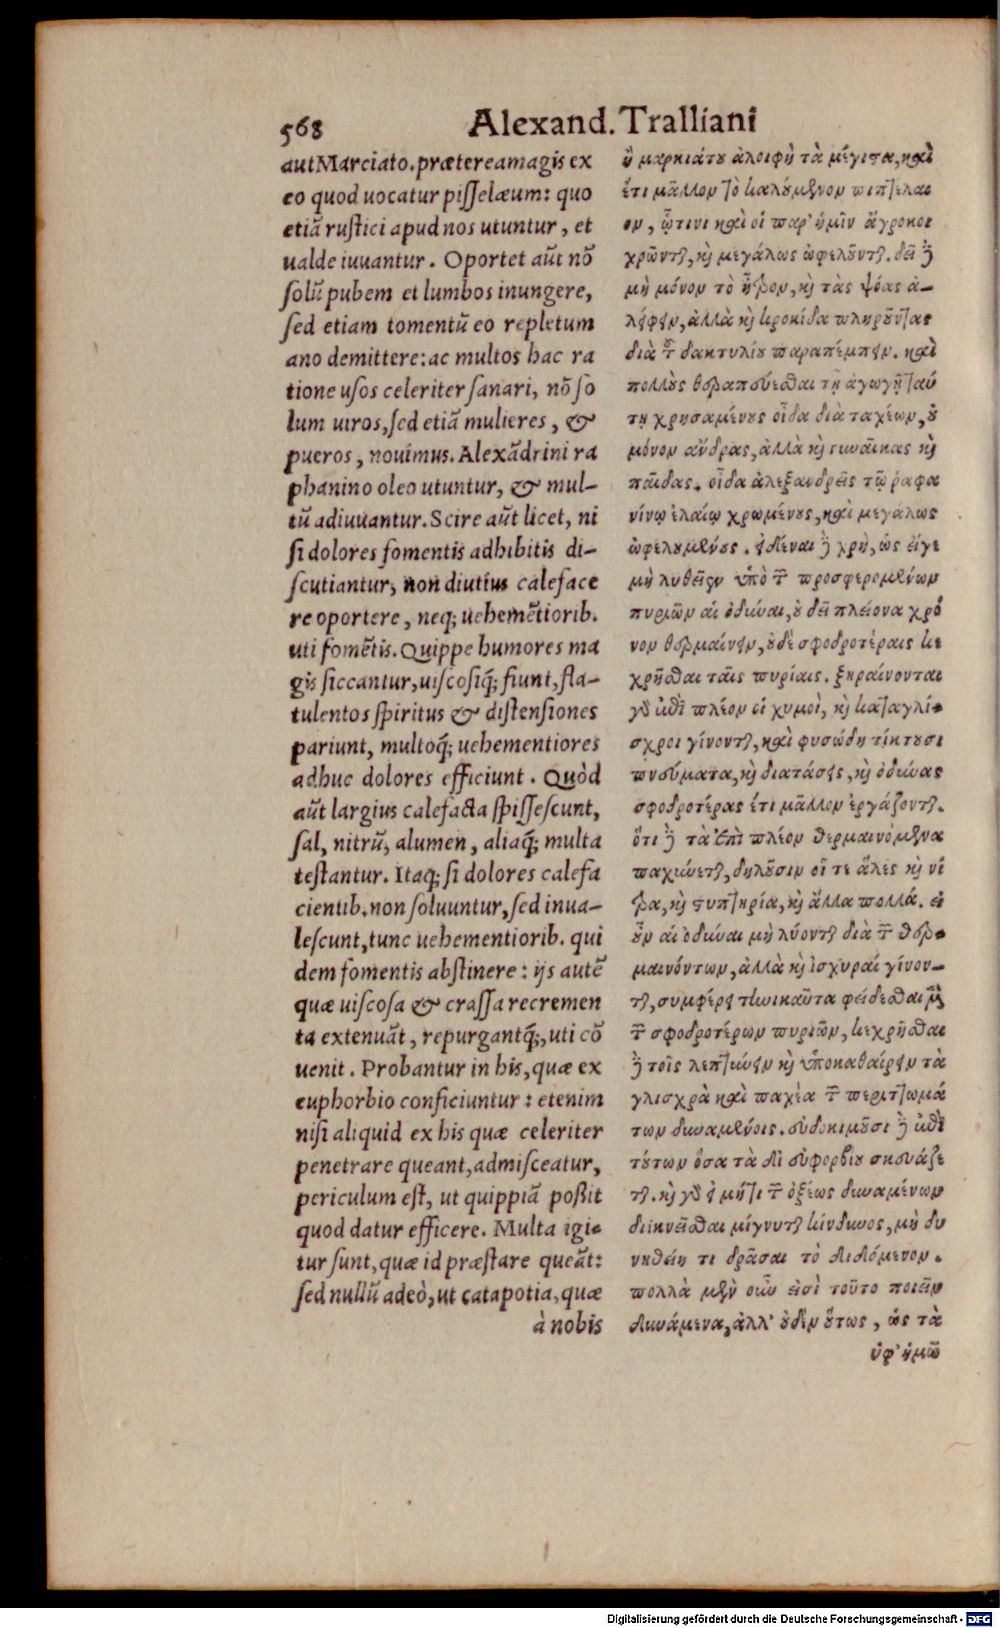 568
Alexand. Tralliani
aut Marciato. præterea magis ex
eo quod uocatur pisſelæum: quo
etiã ruſtici apud nos utuntur, et
ualde iuuantur. Oportet aũt nõ
ſolũ pubem et lumbos inungere,
ſed etiam tomentũ eo repletum
ano demittere: ac multos hac ra
tione uſos celeriter ſanari, nõ ſo
lum uiros, ſed etiã mulieres, &
pueros, nouimus. Alexãdrini ra
phanino oleo utuntur, & mul-
tũ adiuuantur. Scire aũt licet, ni
ſi dolores fomentis adhibitis di-
ſcutiantur, non diutius caleface
re oportere, neq; uehemẽtiorib.
uti fomẽtis. Quippe humores ma
gis ſiccantur, uiſcoſiq́; fiunt, fla-
tulentos ſpiritus & diſtenſiones
pariunt, multoq́; uehementiores
adhuc dolores efficiunt. Quòd
aũt largius calefacta ſpiſſeſcunt,
ſal, nitrũ, alumen, aliaq́; multa
teſtantur. Itaq; ſi dolores calefa
cientib. non ſoluuntur, ſed inua-
leſcunt, tunc uehementiorib. qui
dem fomentis abſtinere: ijs autẽ
quæ uiſcoſa & craſſa recremen
ta extenuãt, repurgantq́;, uti cõ
uenit. Probantur in his, quæ ex
euphorbio conficiuntur: etenim
niſi aliquid ex his quæ celeriter
penetrare queant, admiſceatur,
periculum eſt, ut quippiã poßit
quod datur efficere. Multa igi-
tur ſunt, quæ id præſtare queãt:
ſed nullũ adeò, ut catapotia, quæ
à nobis
ἢ μαρκιάτου ἀλοιφὴ τὰ μέγιστα, καὶ
ἔτι μᾶλλον τὸ καλούμενον πισσέλαι
ον, ᾧτινι καὶ οἱ παρ' ἡμῖν ἄγροικοι
χρῶνται, καὶ μεγάλως ὠφελοῦνται. δεῖ δὲ
μὴ μόνον τὸ ἦτρον, καὶ τὰς ψόας ἀ-
λείφειν, ἀλλὰ καὶ κροκίδα πληροῦντας
διὰ τοῦ δακτυλίου παραπέμπειν. καὶ
πολλοὺς θεραπεύεσθαι τῇ ἀγωγῇ ταύ
τῃ χρησαμένους οἶδα διὰ ταχέων, οὐ
μόνον ἄνδρας, ἀλλὰ καὶ γυναῖκας καὶ
παῖδας. οἶδα ἀλεξανδρεῖς τῷ ῥαφα
νίνῳ ἐλαίῳ χρωμένους, καὶ μεγάλως
ὠφελουμένους. εἰδέναι δὲ χρὴ, ὡς εἴγε
μὴ λυθεῖεν ὑπὸ τῶν προσφερομένων
πυριῶν αἱ ὀδύναι, οὐ δεῖ πλείονα χρό
νον θερμαίνειν, οὐδὲ σφοδροτέραις κε
χρῆσθαι ταῖς πυρίαις. ξηραίνονται
γὰρ ἐπὶ πλέον οἱ χυμοὶ, καὶ καταγλί-
σχροι γίνονται, καὶ φυσώδη τίκτουσι
πνεύματα, καὶ διατάσεις, καὶ ὀδύνας
σφοδροτέρας ἔτι μᾶλλον ἐργάζονται.
ὅτι δὲ τὰ ἐπὶ πλέον θερμαινόμενα
παχύνεται, δηλοῦσιν οἵ τε ἅλες καὶ νί
τρα, καὶ στυπτηρία, καὶ ἄλλα πολλά. εἰ
οὖν αἱ ὀδύναι μὴ λύονται διὰ τῶν θερ-
μαινόντων, ἀλλὰ καὶ ἰσχυραὶ γίνον-
ται, συμφέρει τηνικαῦτα φείδεσθαι μὲν
τῶν σφοδροτέρων πυριῶν, κεχρῆσθαι
δὲ τοῖς λεπτύνειν καὶ ὑποκαθαίρειν τὰ
γλισχρὰ καὶ παχέα τῶν περιττωμά
των δυναμένοις. εὐδοκιμοῦσι δὲ ἐπὶ
τούτων ὅσα τὰ δι' εὐφορβίου σκευάζε
ται. καὶ γὰρ εἰ μήτι τῶν ὀξέως δυναμένων
διικνεῖσθαι μίγνυται κίνδυνος, μὴ δυ
νηθείη τι δρᾶσαι τὸ διδόμενον.
πολλὰ μὲν οὖν εἰσὶ τοῦτο ποιεῖν
δυνάμενα, ἀλλ' οὐδὲν οὕτως, ὡς τὰ
ὑφ' ἡμῶ
Digitalisierung gefördert durch die Deutsche Forschungsgemeinschaft - DFG